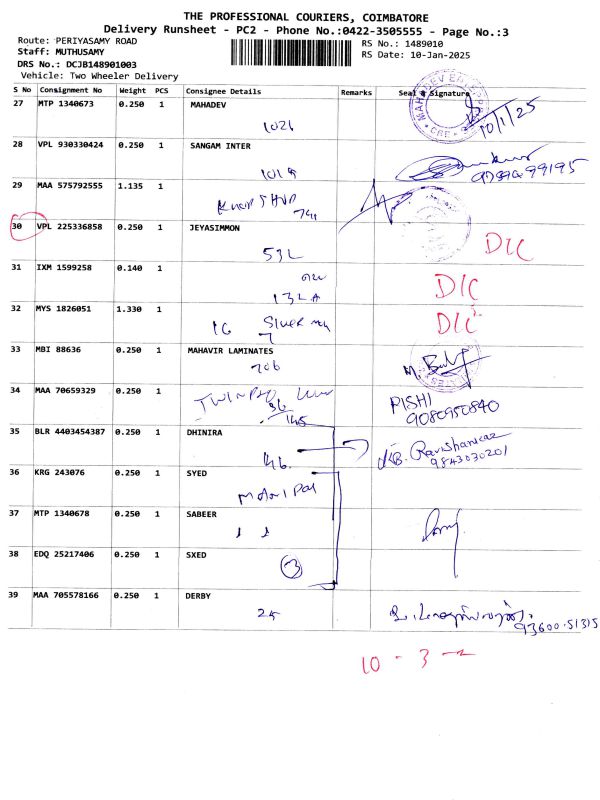 THE PROFESSIONAL COURIERS, COIMBATORE
Delivery Runsheet - PC2 - Phone No.:0422-3505555 - Page No.:3
Route: PERIYASAMY ROAD
Staff: MUTHUSAMY
DRS No.: DCJB148901003
Vehicle: Two Wheeler Delivery
RS No.: 1489010
RS Date: 10-Jan-2025
S No Consignment No Weight PCS Consignee Details Remarks Seal & Signature
27 MTP 1340673 0.250 1 MAHADEV
1026 10/1/25
28 VPL 930330424 0.250 1 SANGAM INTER
1019
29 MAA 575792555 1.135 1
30 VPL 225336858 0.250 1 JEYASIMMON
53L D/C
31 IXM 1599258 0.140 1
132A D/C
32 MYS 1826051 1.330 1
16 D/C
33 MBI 88636 0.250 1 MAHAVIR LAMINATES
706
34 MAA 70659329 0.250 1
145
PISHI
9080950840
35 BLR 4403454387 0.250 1 DHINIRA
146
K.B. Ravishankar
9843030201
36 KRG 243076 0.250 1 SYED
37 MTP 1340678 0.250 1 SABEER
38 EDQ 25217406 0.250 1 SXED
3
39 MAA 705578166 0.250 1 DERBY
25
93600.51315
10 - 3 -